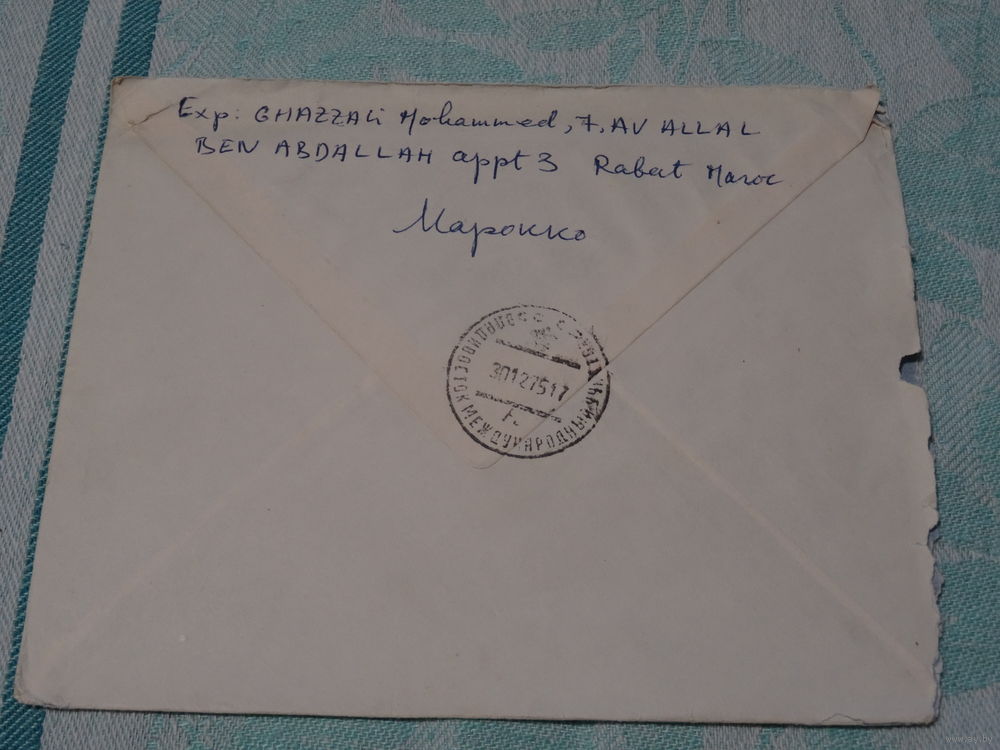 Exp: GHAZZALi Mohammed, 7, AV ALLAL
BEN ABDALLAH appt 3 Rabat Maroc
Марокко
30127517
МЕЖДУНАРОДНЫЙ
www.ay.by